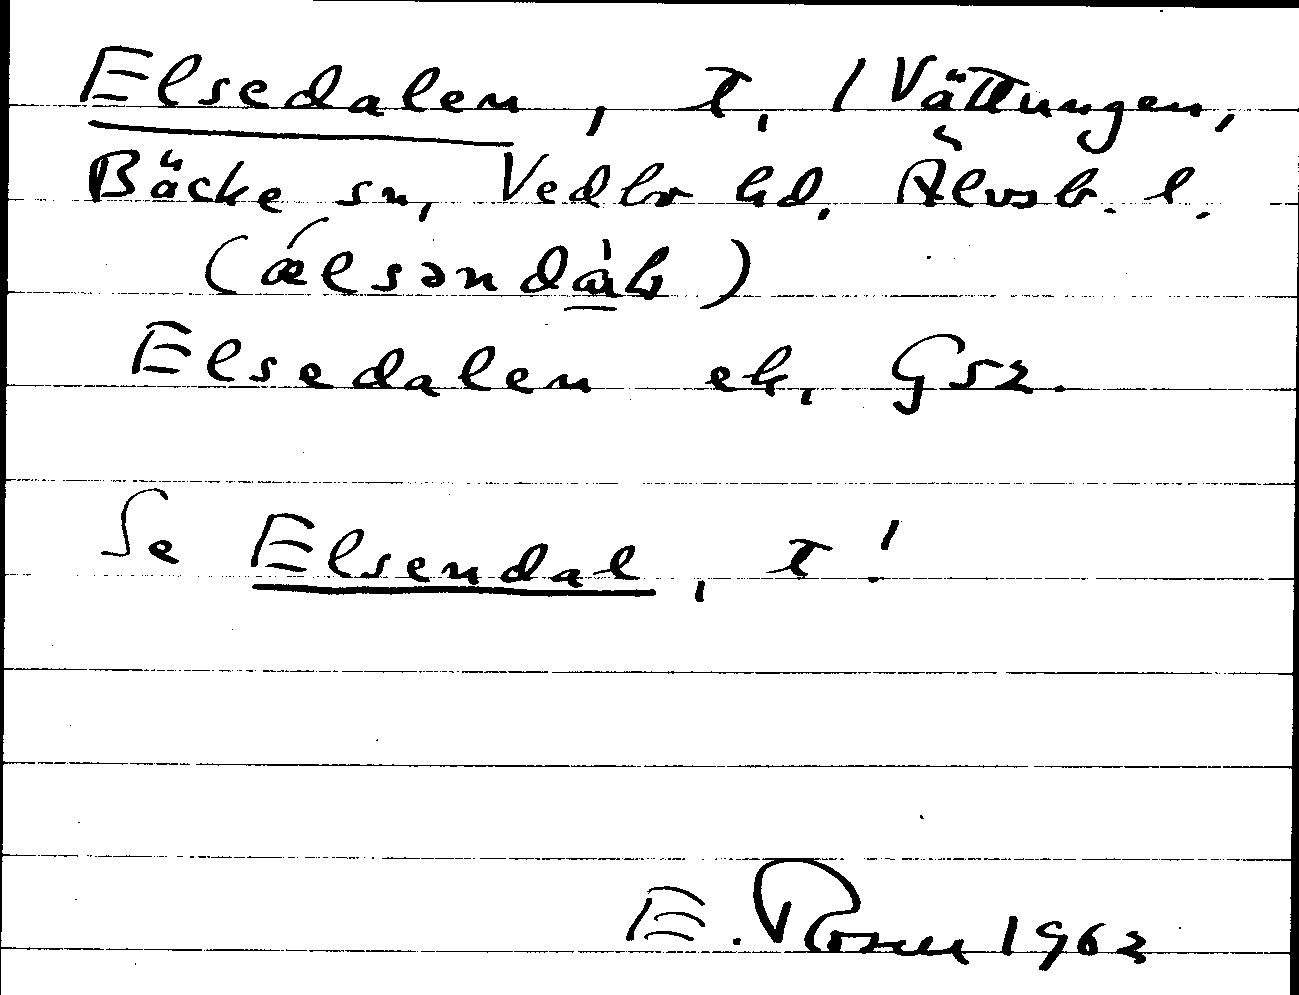 Elsedalen, t, / Vättungen,
Bäcke sn, Vedbo hd, Älvsb. l.
(ǽlsəndàḷ)
Elsedalen ek, G52.
Se Elsendal, t!
E. Rosell 1962